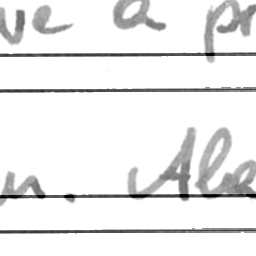 ve a pr
n. Ale